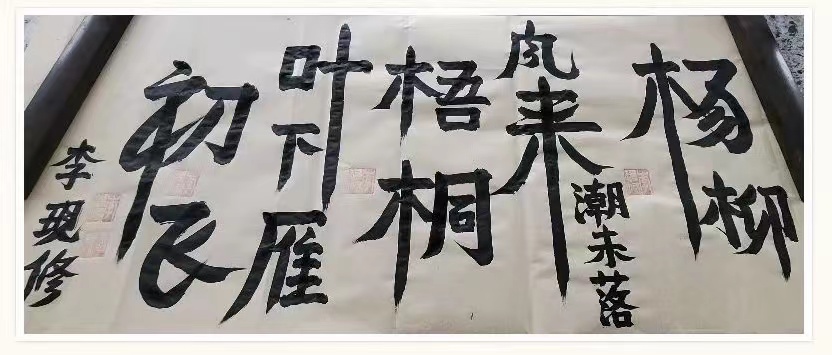 杨柳
风来
潮未落
梧桐
叶下
雁
初飞
李现修